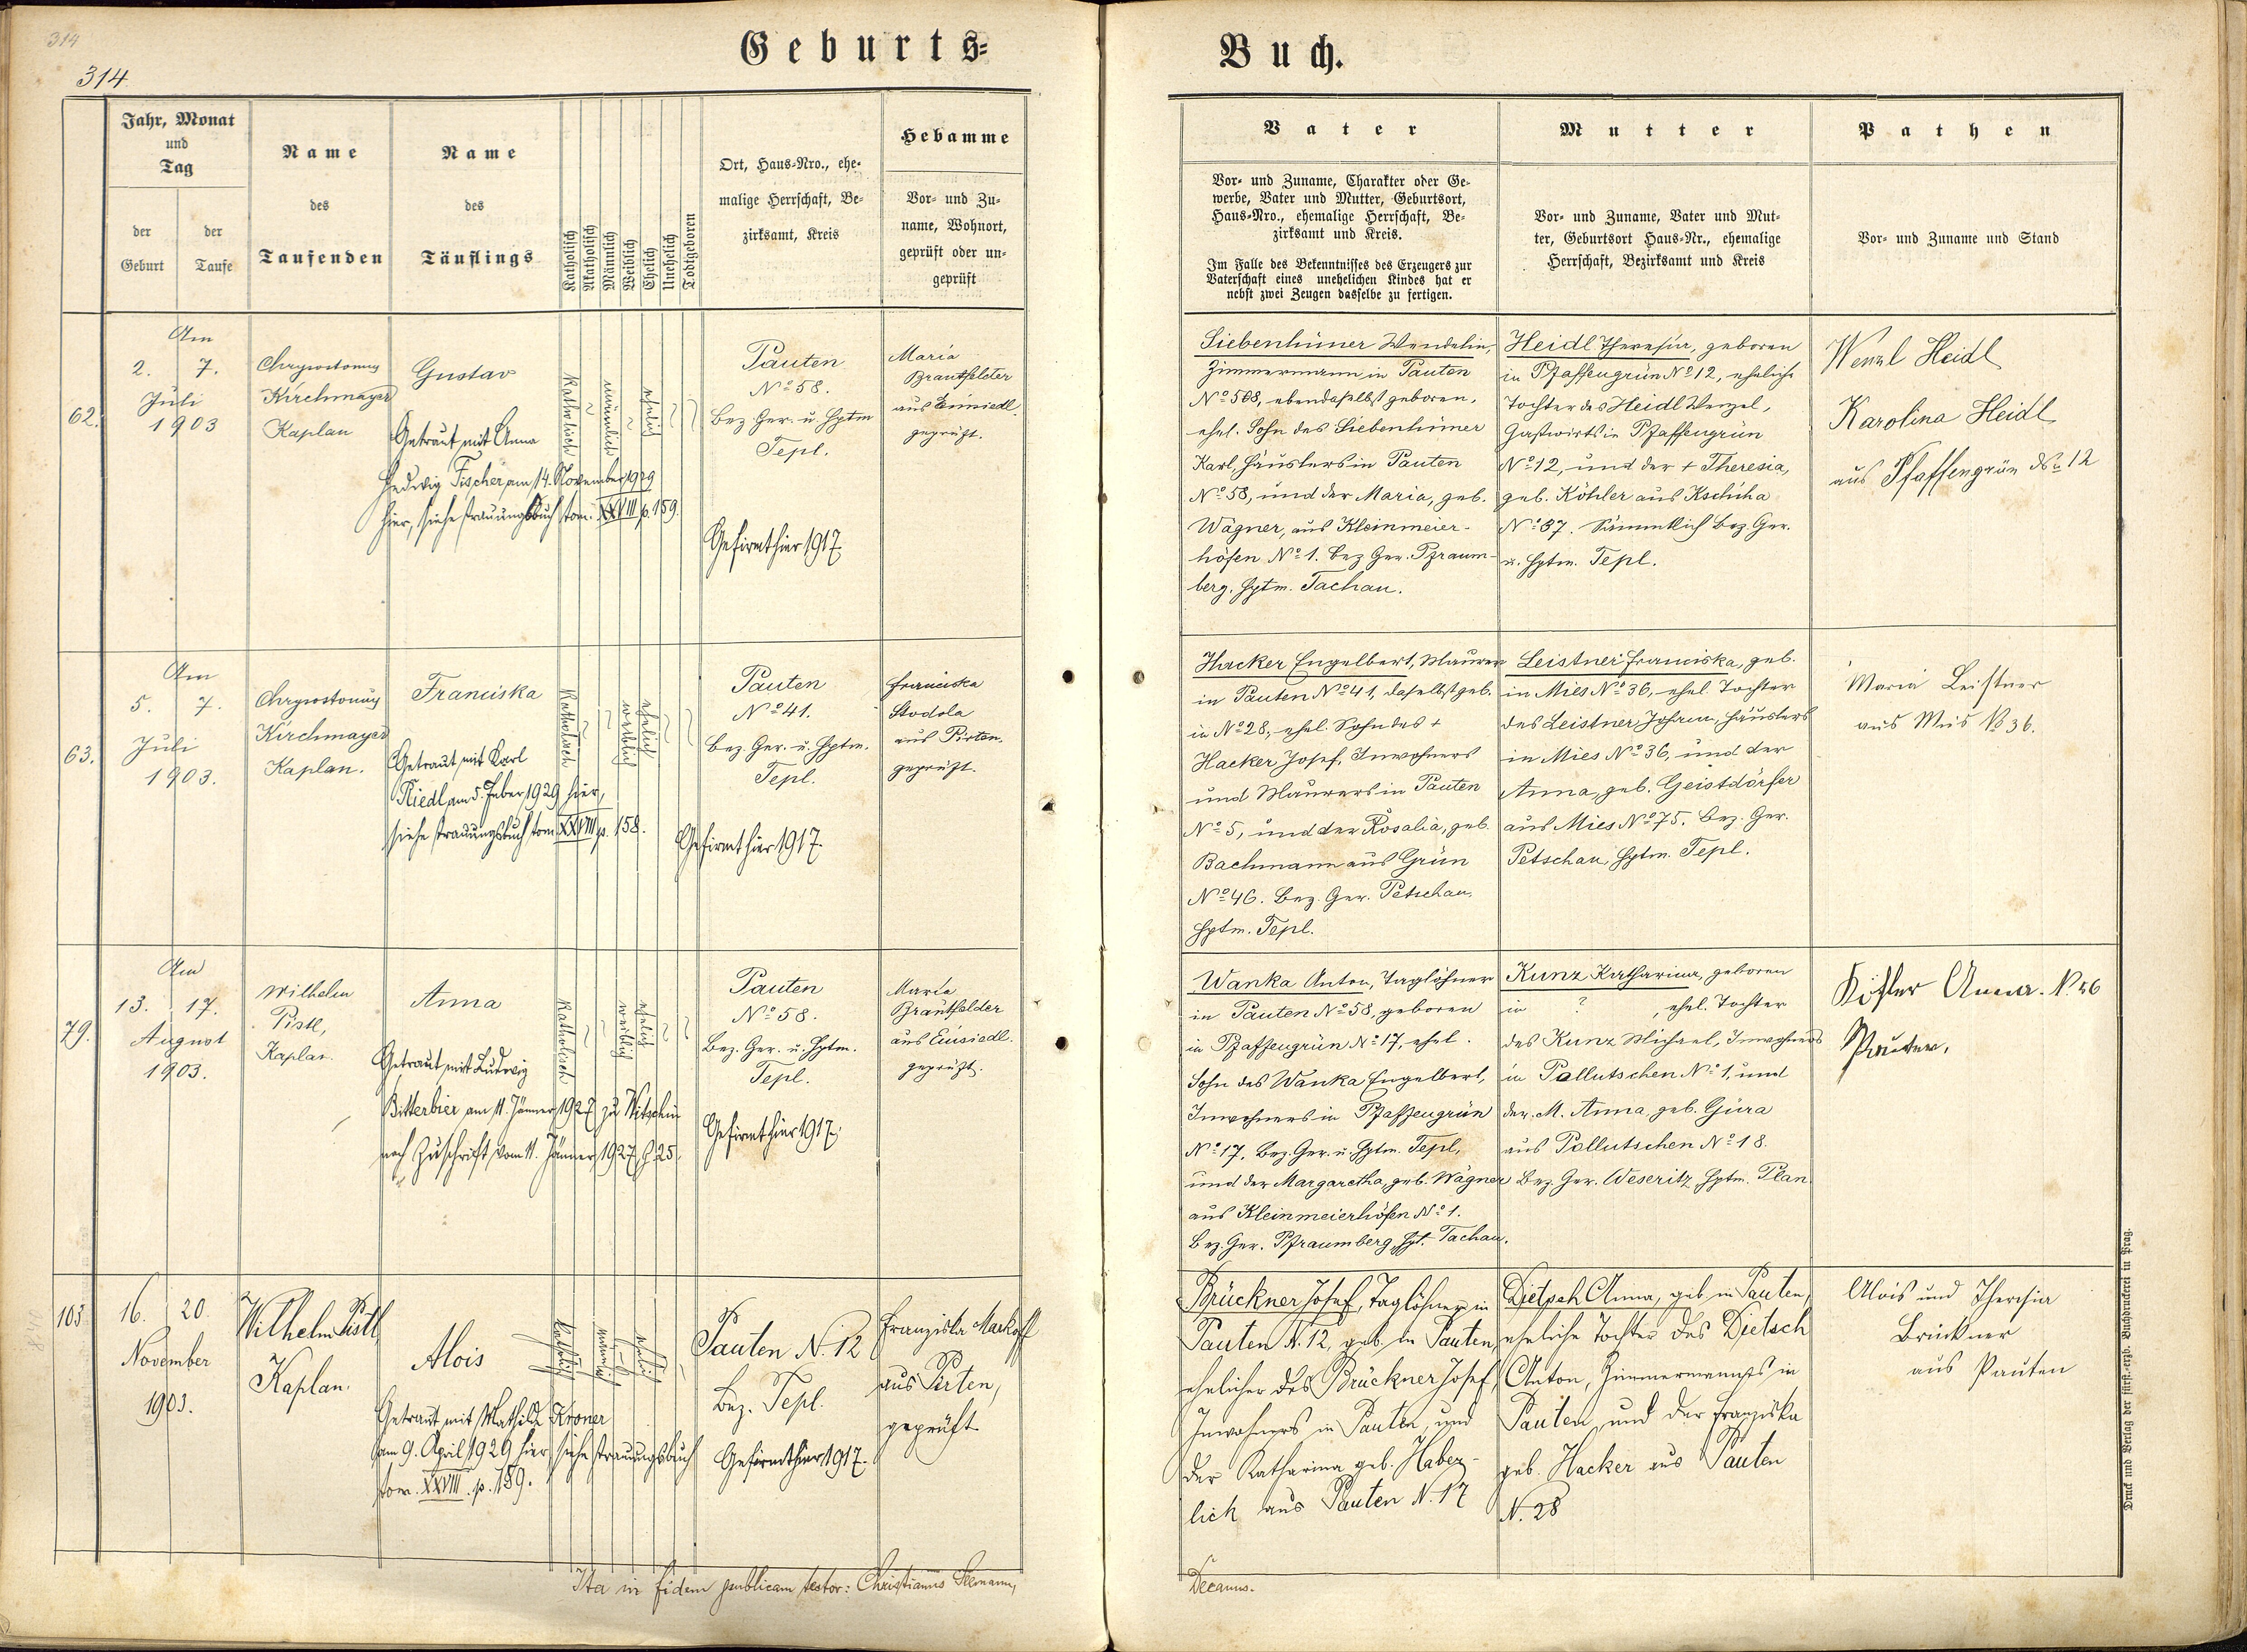 314
314
Geburts=
Jahr, Monat
und
Tag
der
Geburt
der
Taufe
Name
des
Taufenden
Name
des
Täuflings
Katholisch
Akatholisch
Männlich
Weiblich
Ehelich
Unehelich
Todtgeboren
Ort, Haus-Nro., ehe-
malige Herrschaft, Be-
zirksamt, Kreis
Hebamme
Vor- und Zu-
name, Wohnort,
geprüft oder un-
geprüft
62.
Am
2. 7.
Juli
1903
Chrysostomus
Kirchmayer
Kaplan
Gustav
Getraut mit Anna
Hedwig Fischer, am 14. November 1929
hier, siehe Trauungsbuch tom. XXVIII p. 159.
Katholisch
männlich
ehelich
Pauten
No 58.
Bez. Ger. u. Hptm
Tepl.
Gefirmt hier 1917.
Maria
Brautfelder
aus Einsiedl.
geprüft.
63.
Am
5. 7.
Juli
1903.
Chrysostomus
Kirchmayer
Kaplan.
Franciska
Getraut mit Karl
Riedl am 5. Feber 1929 hier,
siehe Trauungsbuch tom. XXVIII p. 158.
Katholisch
weiblich
ehelich
Pauten
No 41.
Bez. Ger. u. Hptm.
Tepl.
Gefirmt hier 1917.
Franciska
Stodola
aus Pirten.
geprüft.
79.
Am
13. 17.
August
1903.
Wilhelm
Pistl,
Kaplan.
Anna
Getraut mit Ludwig
Bitterbier am 11. Jänner 1927 zu Witschin
nach Zuschrift vom 11. Jänner 1927, Z. 25.
Katholisch
weiblich
ehelich
Pauten
No 58.
Bez. Ger. u. Hptm.
Tepl.
Gefirmt hier 1917.
Maria
Brautfelder
aus Einsiedl.
geprüft.
103
16. 20
November
1903.
Wilhelm Pistl
Kaplan.
Alois
Getraut mit Mathilde Kroner
am 9. April 1929 hier, siehe Trauungsbuch
tom. XXVIII. p. 159.
katholisch
männlich
ehelich
Pauten N. 12
Bez. Tepl.
Gefirmt hier 1917.
Franziska Markoff
aus Pirten,
geprüft
Ita in fidem publicam testor: Christianus Seemann,
Buch.
Vater
Vor- und Zuname, Charakter oder Ge-
werbe, Vater und Mutter, Geburtsort,
Haus-Nro., ehemalige Herrschaft, Be-
zirksamt und Kreis.
Im Falle des Bekenntnisses des Erzeugers zur
Vaterschaft eines unehelichen Kindes hat er
nebst zwei Zeugen dasselbe zu fertigen.
Mutter
Vor- und Zuname, Vater und Mut-
ter, Geburtsort Haus-Nr., ehemalige
Herrschaft, Bezirksamt und Kreis
Pathen
Vor- und Zuname und Stand
Siebenhüner Wendelin,
Zimmermann in Pauten
No 58, ebendaselbst geboren,
ehel. Sohn des Siebenhüner
Karl, Häuslers in Pauten
No 58, und der Maria, geb.
Wagner, aus Kleinmeier-
höfen No 1. Bez. Ger. Pfraum-
berg, Hptm. Tachau.
Heidl Theresia, geboren
in Pfaffengrün No 12, eheliche
Tochter des Heidl Wenzel,
Gastwirts in Pfaffengrün
No 12, und der + Theresia,
geb. Köhler aus Kschiha
No 37. Sämmtlich Bez. Ger.
u. Hptm. Tepl.
Wenzl Heidl
Karolina Heidl
aus Pfaffengrün No 12
Hacker Engelbert, Maurer
in Pauten No 41, daselbst geb.
in No 28, ehel. Sohn des +
Hacker Josef, Inwohners
und Maurers in Pauten
No 5, und der Rosalia, geb.
Bachmann aus Grün
No 46. Bez. Ger. Petschau,
Hptm. Tepl.
Leistner Franciska, geb.
in Mies No 36, ehel. Tochter
des Leistner Johann, Häuslers
in Mies No 36, und der
Anna, geb. Geistdörfer
aus Mies No 75. Bez. Ger.
Petschau, Hptm. Tepl.
Maria Leistner
aus Mies No 36.
Wanka Anton, Taglöhner
in Pauten No 58, geboren
in Pfaffengrün No 17, ehel.
Sohn des Wanka Engelbert,
Inwohners in Pfaffengrün
No 17. Bez. Ger. u. Hptm. Tepl,
und der Margaretha, geb. Wagner
aus Kleinmeierhöfen No 1.
Bez. Ger. Pfraumberg, Hpt. Tachau.
Kunz Katharina, geboren
in ? , ehel. Tochter
des Kunz Michael, Inwohners
in Pollutschen No 1, und
der M. Anna, geb. Gura
aus Pollutschen No 18.
Bez. Ger. Weseritz, Hptm. Plan.
Anna. N. 56
Pauten.
Brückner Josef, Taglöhner in
Pauten N. 12, geb. in Pauten,
ehelicher des Brückner Josef,
Inwohners in Pauten, und
der Katharina geb. Haber-
lich aus Pauten N. 17
Dietsch Anna, geb. in Pauten,
eheliche Tochter des Dietsch
Anton, Zimmermanns in
Pauten, und der Franziska
geb. Hacker aus Pauten
N. 28
Alois und Theresia
Brückner
aus Pauten
Decanus.
Druck und Verlag der fürst.-erzb. Buchdruckerei in Prag.